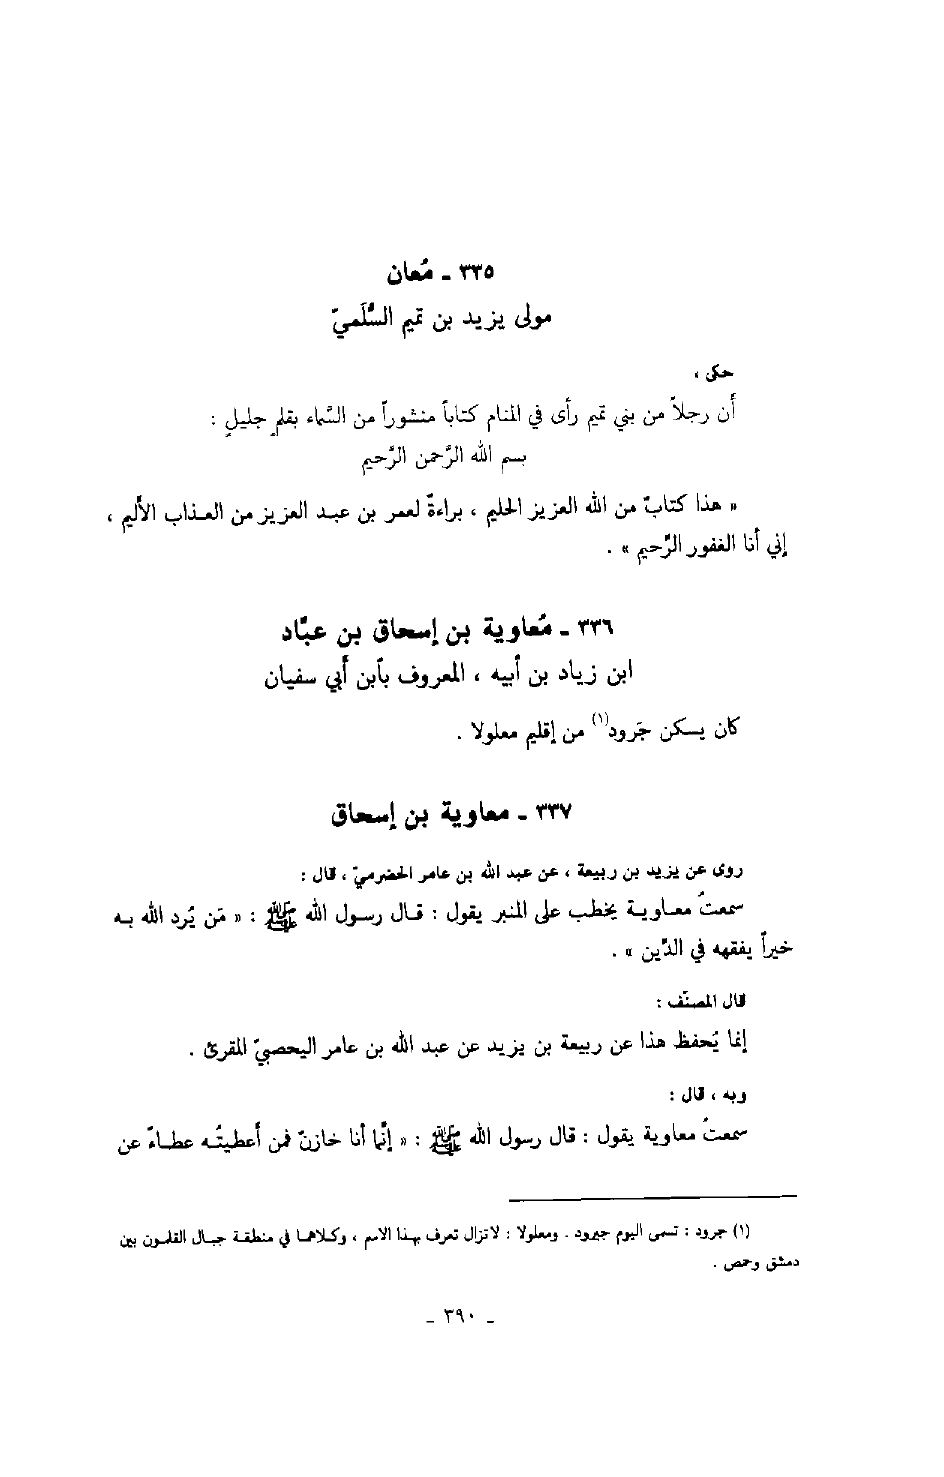 ٣٣٥ ـ مُعان
مولى يزيد بن تميم السُّلَميّ
حكى ،
أن رجلاً من بني تميم رأى في المنام كتاباً منشوراً من السَّماء بقلمٍ جليلٍ :
بسم الله الرَّحمن الرَّحيم
« هذا كتابٌ من الله العزيز الحليم ، براءةٌ لعمر بن عبد العزيز من العذاب الأليم ،
إني أنا الغفور الرَّحيم » .
٣٣٦ ـ مُعاوية بن إسحاق بن عبَّاد
ابن زياد بن أبيه ، المعروف بآبن أبي سفيان
كان يسكن جَرود(١) من إقليم معلولا .
٣٣٧ ـ معاوية بن إسحاق
روى عن يزيد بن ربيعة ، عن عبد الله بن عامر الحضرميّ ، قال :
سمعتُ معاوية يخطب على المنبر يقول : قال رسول الله ﷺ : « مَن يُرد الله به
خيراً يفقهه في الدِّين » .
قال المصنّف :
إنما يُحفظ هذا عن ربيعة بن يزيد عن عبد الله بن عامر اليحصبيّ المقرئ .
وبه ، قال :
سمعتُ معاوية يقول : قال رسول الله ﷺ : « إنَّما أنا خازنٌ فمن أعطيتُه عطاءً عن
(١) جرود : تسمى اليوم جيرود . ومعلولا : لاتزال تعرف بهذا الاسم ، وكلاهما في منطقة جبال القلمون بين
دمشق وحمص .
ـ ٣٩٠ ـ